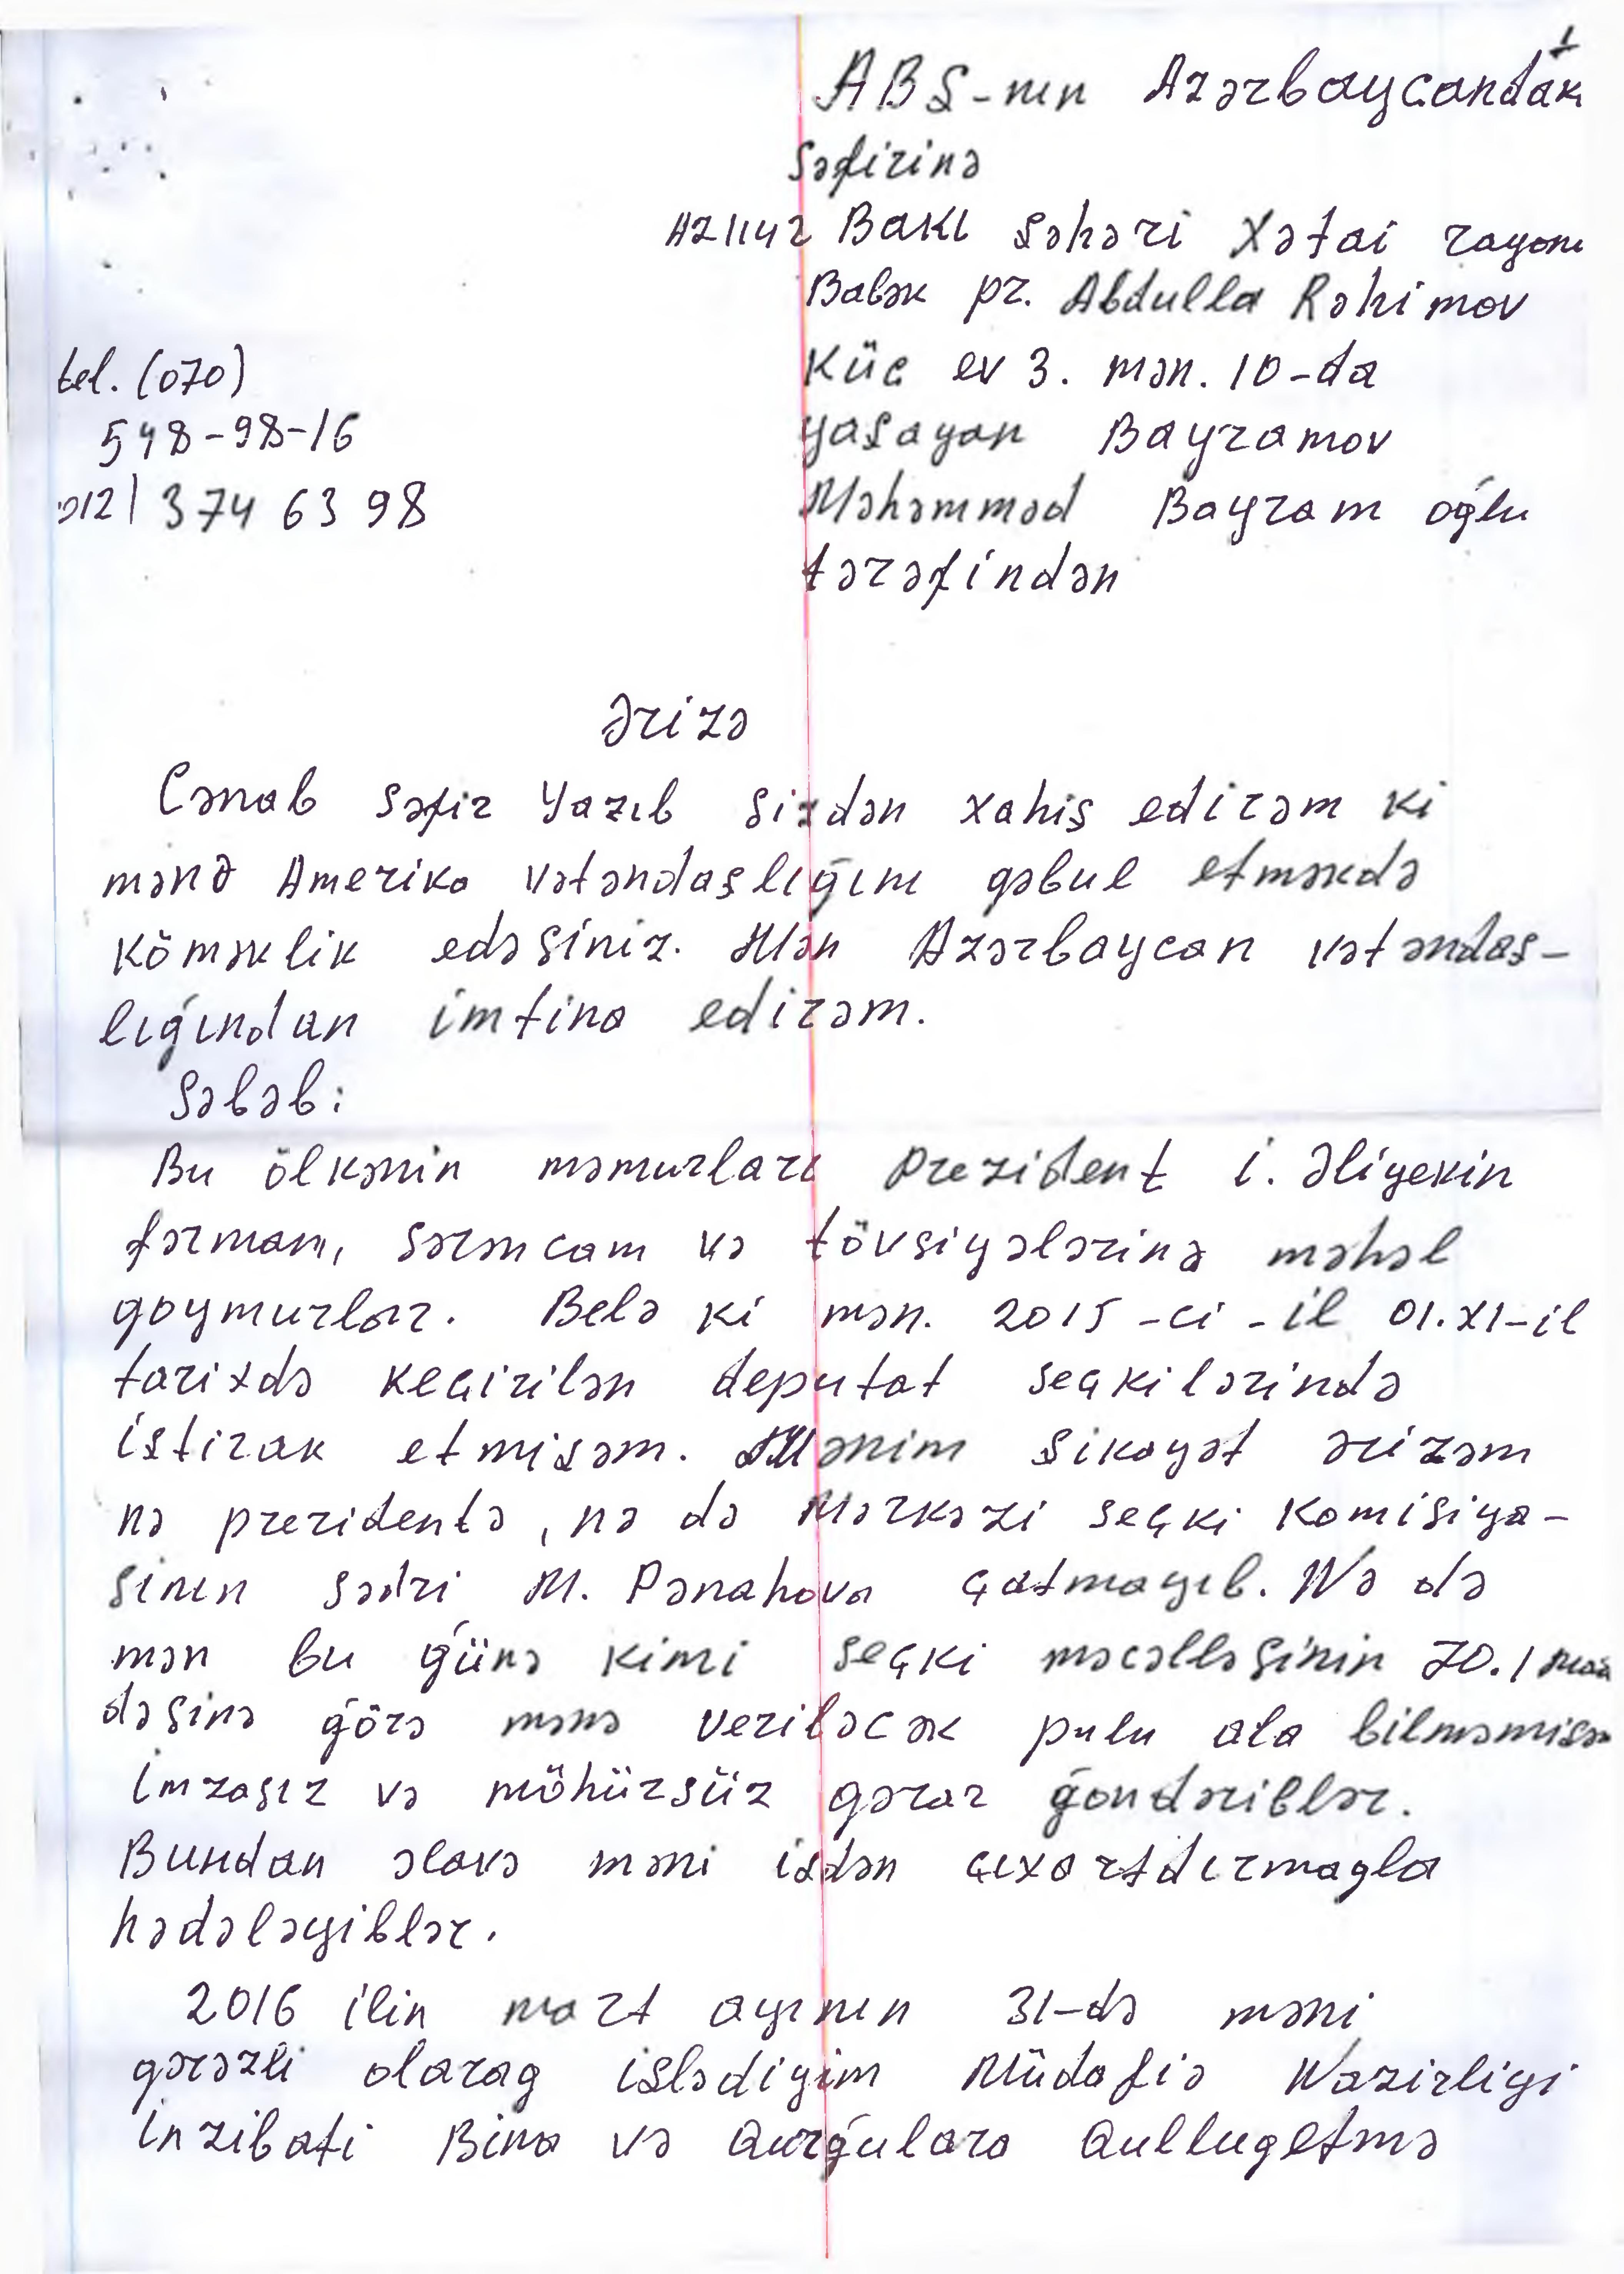 1
ABŞ-nın Azərbaycandakı
Səfirinə
AZ1142 Bakı şəhəri Xətai rayonu
Babək pr. Abdulla Rəhimov
küç ev 3. mən. 10-da
yaşayan Bayramov
Məhəmməd Bayram oğlu
tərəfindən
tel. (070)
548-98-16
012) 374 63 98
Ərizə
Cənab səfir Yazıb sizdən xahiş edirəm ki
mənə Amerika vətəndaşlığını qəbul etməkdə
köməklik edəsiniz. Mən Azərbaycan vətəndaş-
lığından imtina edirəm.
Səbəb:
Bu ölkənin məmurları prezident i. Əliyevin
fərmanı, sərəncam və tövsiyələrinə məhəl
qoymurlar. Belə ki mən. 2015-ci-il 01.XI-il
tarixdə keçirilən deputat seçkilərində
iştirak etmişəm. Mənim şikayət ərizəm
nə prezidentə, nə də Mərkəzi seçki Komisiya-
sının sədri M. Pənahova çatmayıb. Nə də
mən bu günə kimi seçki məcəlləsinin 70.1 mad
dəsinə görə mənə veriləcək pulu ala bilməmişəm
imzasız və möhürsüz qərar göndəriblər.
Bundan əlavə məni işdən çıxartdırmaqla
hədələyiblər.
2016 ilin mart ayının 31-də məni
qərəzli olaraq işlədiyim Müdafiə Nazirliyi
inzibati Bina və Qurğulara Qulluqetmə